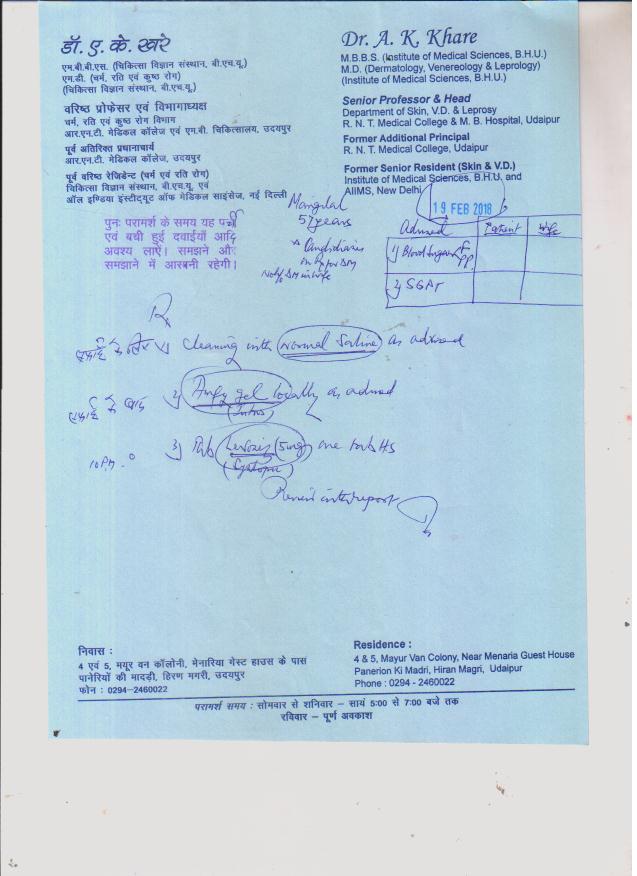 डॉ. ए. के. खरे
एम.बी.बी.एस. (चिकित्सा विज्ञान संस्थान, बी.एच.यू.)
एम.डी. (चर्म, रति एवं कुष्ठ रोग)
(चिकित्सा विज्ञान संस्थान, बी.एच.यू.)
वरिष्ठ प्रोफेसर एवं विभागाध्यक्ष
चर्म, रति एवं कुष्ठ रोग विभाग
आर.एन.टी. मेडिकल कॉलेज एवं एम.बी. चिकित्सालय, उदयपुर
पूर्व अतिरिक्त प्रधानाचार्य
आर.एन.टी. मेडिकल कॉलेज, उदयपुर
पूर्व वरिष्ठ रेजिडेन्ट (चर्म एवं रति रोग)
चिकित्सा विज्ञान संस्थान, बी.एच.यू. एवं
ऑल इण्डिया इंस्टीट्यूट ऑफ मेडिकल साइंसेज, नई दिल्ली
Dr. A. K. Khare
M.B.B.S. (Institute of Medical Sciences, B.H.U.)
M.D. (Dermatology, Venereology & Leprology)
(Institute of Medical Sciences, B.H.U.)
Senior Professor & Head
Department of Skin, V.D. & Leprosy
R. N. T. Medical College & M. B. Hospital, Udaipur
Former Additional Principal
R. N. T. Medical College, Udaipur
Former Senior Resident (Skin & V.D.)
Institute of Medical Sciences, B.H.U. and
AIIMS, New Delhi
19 FEB 2018
पुनः परामर्श के समय यह पर्ची
एवं बची हुई दवाईयाँ आदि
अवश्य लाएं। समझने और
समझाने में आसनी रहेगी।
Mangilal
57 years
Advised Patient Wife
1) Blood Sugar F PP
2) SGPT
Rx
1) Cleaning with Normal Saline as advised
2) gel locally as advised
(Intas)
3) Tab (5mg) one tab HS
10 PM
Review with report
निवास :
4 एवं 5, मयूर वन कॉलोनी, मेनारिया गेस्ट हाउस के पास
पानेरियों की मादड़ी, हिरण मगरी, उदयपुर
फोन : 0294-2460022
Residence :
4 & 5, Mayur Van Colony, Near Menaria Guest House
Panerion Ki Madri, Hiran Magri, Udaipur
Phone : 0294 - 2460022
परामर्श समय : सोमवार से शनिवार – सायं 5:00 से 7:00 बजे तक
रविवार – पूर्ण अवकाश